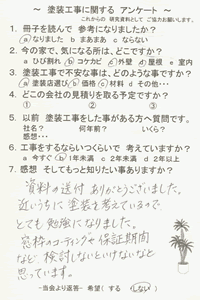 ～ 塗装工事に関する アンケート ～
これからの 研究資料として ご協力お願いします。
1. 冊子を読んで 参考になりましたか?
a なりました b まあまあ c ならない
2. 今の家で、気になる所は、どこですか?
a ひび割れ b コケカビ c 外壁 d 屋根 e 室内
3. 塗装工事で不安な事は、どのような事ですか?
a 塗装店選び b 価格 c サビ d その他
4. どこの会社の見積りを取る予定ですか?
① ② ③
5. 以前 塗装工事をした事がある方へ質問です。
社名? 何年前? いくら?
感想?
6. 工事をするならいつくらいで 考えていますか?
a 今すぐ b 1年未満 c 2年未満 d 2年以上
7. 感想 そしてもっと知りたい事ありますか?
資料の送付 ありがとうございました。
近いうちに 塗装を考えているので
とても 勉強になりました。
窓枠のコーティングや 保証期間
など 検討しないといけないなと
思っています。
-当会より返答- 希望( する しない )